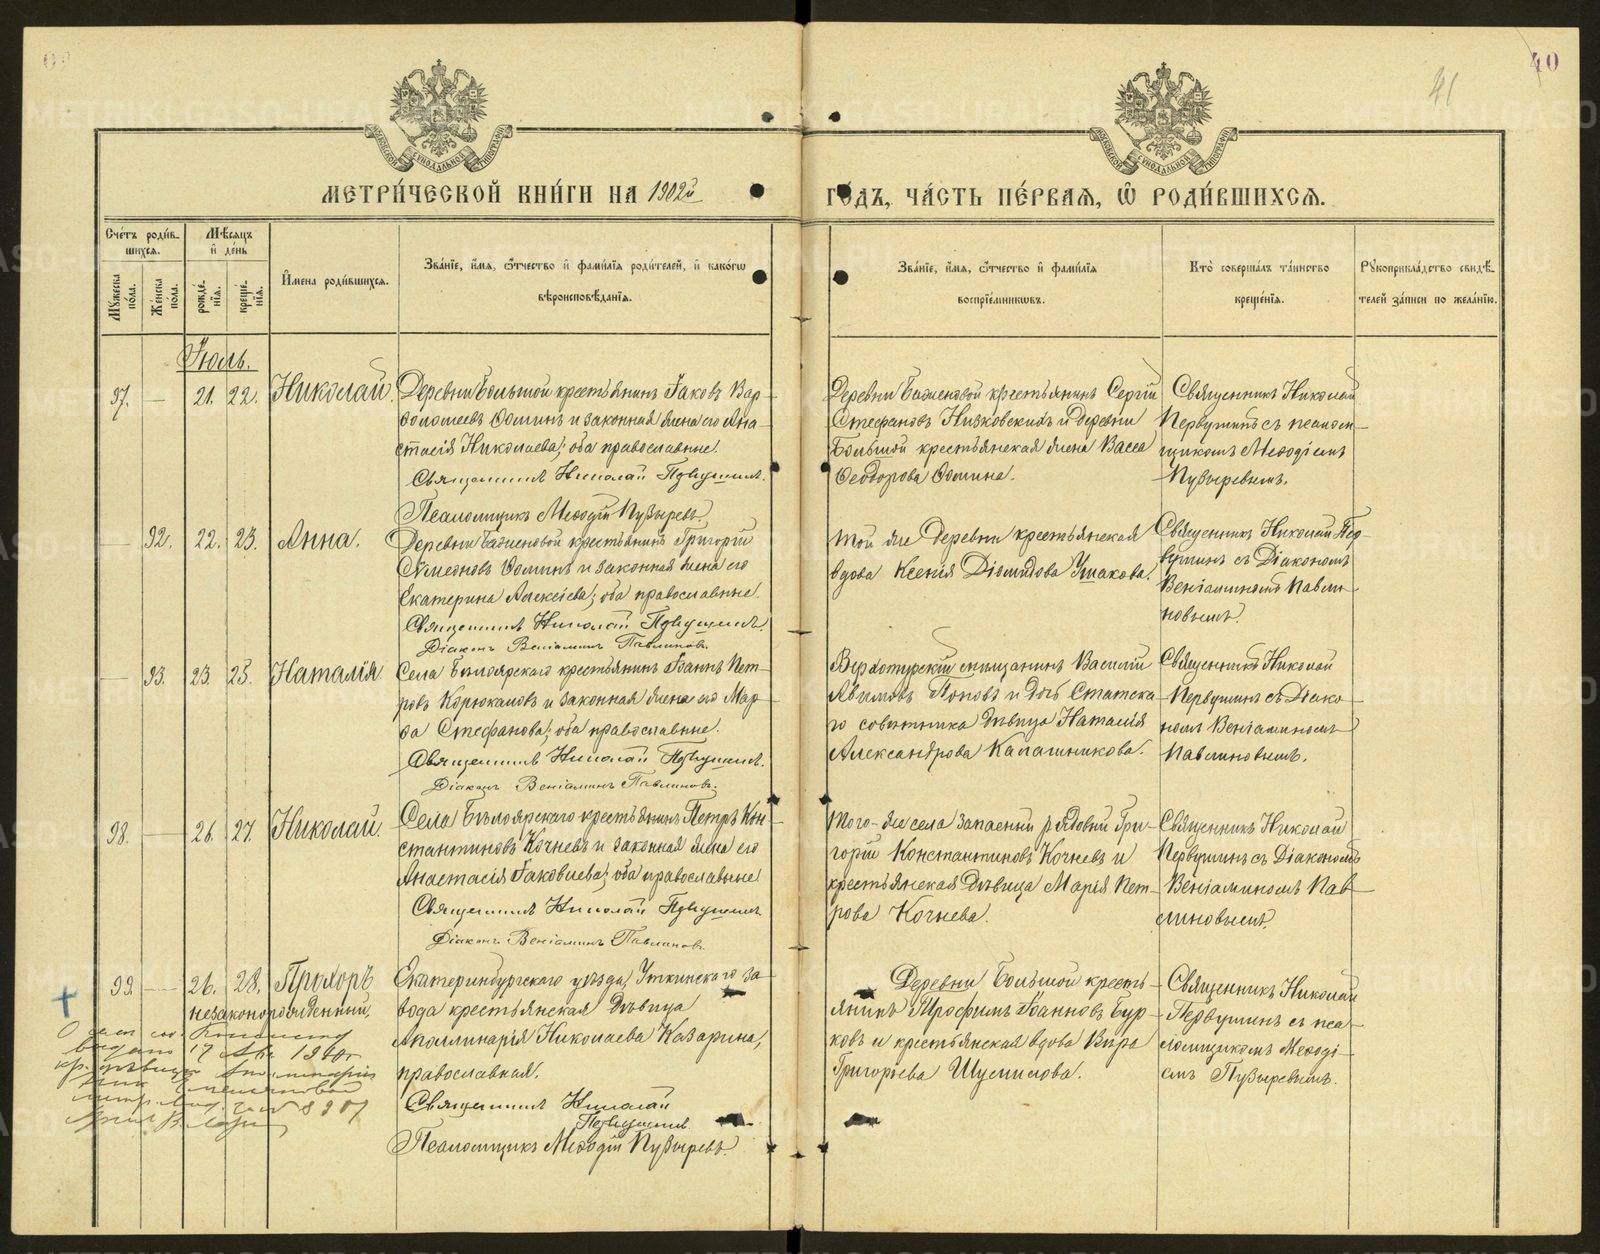 40
41
МЕТРИ́ЧЕСКОЙ КНИ́ГИ НА 1902й
ГО́ДЪ, ЧА́СТЬ ПЕ́РВАѦ, Ѡ҆ РОДИ́ВШИХСѦ.
Сче́тъ роди́в-
шихся.
Мѣ́сяцъ
и҆ де́нь
Мꙋ́жеска по́ла.
Же́нска по́ла.
рожде́-
нїѧ.
креще́-
нїѧ.
И҆мена роди́вшихсѧ.
Зва́нїе, и҆́мѧ, ѻ҆́тчество и҆ фами́лїѧ роди́телей, и҆ како́гѡ
вѣроисповѣ́данїѧ.
Зва́нїе, и҆́мѧ, ѻ҆́тчество и҆ фами́лїѧ
воспрїе́мникѡвъ.
Кто̀ соверша́лъ та́инство
креще́нїѧ.
Рꙋкоприкла́дство свидѣ́-
телей за́писи по жела́нїю.
Іюль.
97. — 21. 22. Николай.
Деревни Большой крестьянинъ Іаковъ Вар-
ѳоломеевъ Ѳоминъ и законная жена его Ана-
стасія Николаева; оба православные.
Священникъ Николай Первушинъ.
Псаломщикъ Меѳодій Пузыревъ.
Деревни Баженовой крестьянинъ Сергій
Стефановъ Низковскихъ и деревни
Большой крестьянская жена Васса
Ѳеодорова Ѳомина.
Священникъ Николай
Первушинъ съ псалом-
щикомъ Меѳодіемъ
Пузыревымъ.
— 92. 22. 23. Анна.
Деревни Баженовой крестьянинъ Григорій
Симеоновъ Ѳоминъ и законная жена его
Екатерина Алексіева; оба православные.
Священникъ Николай Первушинъ.
Діаконъ Веніаминъ Павлиновъ.
Той же деревни крестьянская
вдова Ксенія Діомидова Ушакова.
Священникъ Николай Пер-
вушинъ съ Діакономъ
Веніаминомъ Павли-
новымъ.
— 93. 23. 25. Наталія.
Села Бѣлоярскаго крестьянинъ Іоаннъ Пет-
ровъ Корюкаловъ и законная жена его Мар-
ѳа Стефанова; оба православные.
Священникъ Николай Первушинъ.
Діаконъ Веніаминъ Павлиновъ.
Верхотурскій мѣщанинъ Василій
Поповъ и дочь Статска-
го совѣтника дѣвица Наталія
Александрова Калашникова.
Священникъ Николай
Первушинъ съ Діако-
номъ Веніаминомъ
Павлиновымъ.
98. — 26. 27. Николай.
Села Бѣлоярскаго крестьянинъ Петръ Кон-
стантиновъ Кочневъ и законная жена его
Анастасія Іаковлева; оба православные
Священникъ Николай Первушинъ
Діаконъ Веніаминъ Павлиновъ.
Того-же села запасный рядовой Гри-
горій Константиновъ Кочневъ и
крестьянская дѣвица Марія Пет-
рова Кочнева.
Священникъ Николай
Первушинъ съ Діакономъ
Веніаминомъ Пав-
линовымъ.
99. — 26. 28. Прохоръ
незаконорожденный.
Екатеринбургскаго уѣзда, Уткинскаго за-
вода крестьянская дѣвица
Аполлинарія Николаева Казарина,
православная.
Священникъ Николай
Первушинъ
Псаломщикъ Меѳодій Пузыревъ.
Деревни Большой кресть-
янинъ Трофимъ Іоанновъ Бур-
ковъ и крестьянская вдова Вѣра
Григорьева Шумилова.
Священникъ Николай
Первушинъ съ пса-
ломщикомъ Меѳоді-
емъ Пузыревымъ.